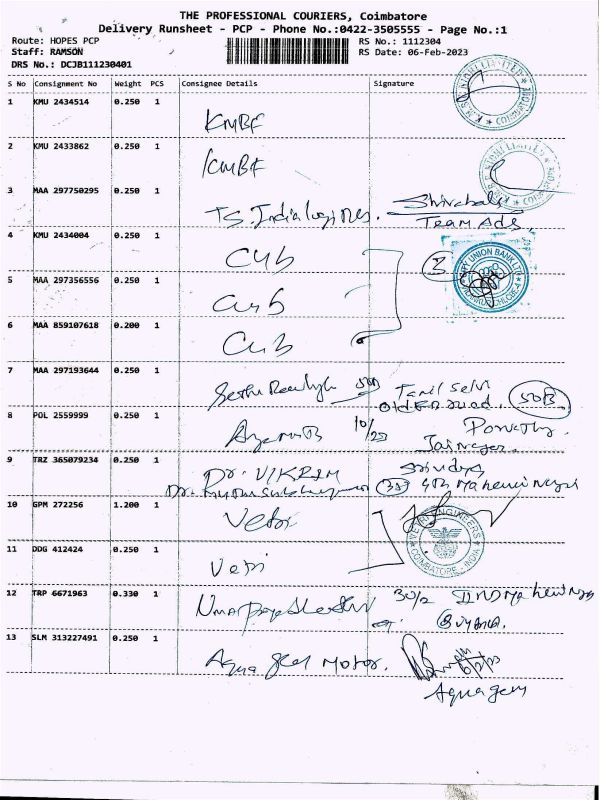 THE PROFESSIONAL COURIERS, Coimbatore
Delivery Runsheet - PCP - Phone No.:0422-3505555 - Page No.:1
Route: HOPES PCP
RS No.: 1112304
Staff: RAMSON
RS Date: 06-Feb-2023
DRS No.: DCJB111230401
S No Consignment No Weight PCS Consignee Details Signature
1 KMU 2434514 0.250 1
KMBF
2 KMU 2433862 0.250 1
KMBF
3 MAA 297750295 0.250 1
TS. India
Team Ads
4 KMU 2434004 0.250 1
CUB
3
5 MAA 297356556 0.250 1
CUB
6 MAA 859107618 0.200 1
CUB
7 MAA 297193644 0.250 1
Tamil Selvi
50B
8 POL 2559999 0.250 1
10/23
9 TRZ 365079234 0.250 1
Dr. VIKRAM
Dr.
10 GPM 272256 1.200 1
Vetri
VETRI ENGINEERS
COIMBATORE - INDIA
11 DDG 412424 0.250 1
Vetri
12 TRP 6671963 0.330 1
30/2
13 SLM 313227491 0.250 1
Aqua gem Motor.
Aqua gem